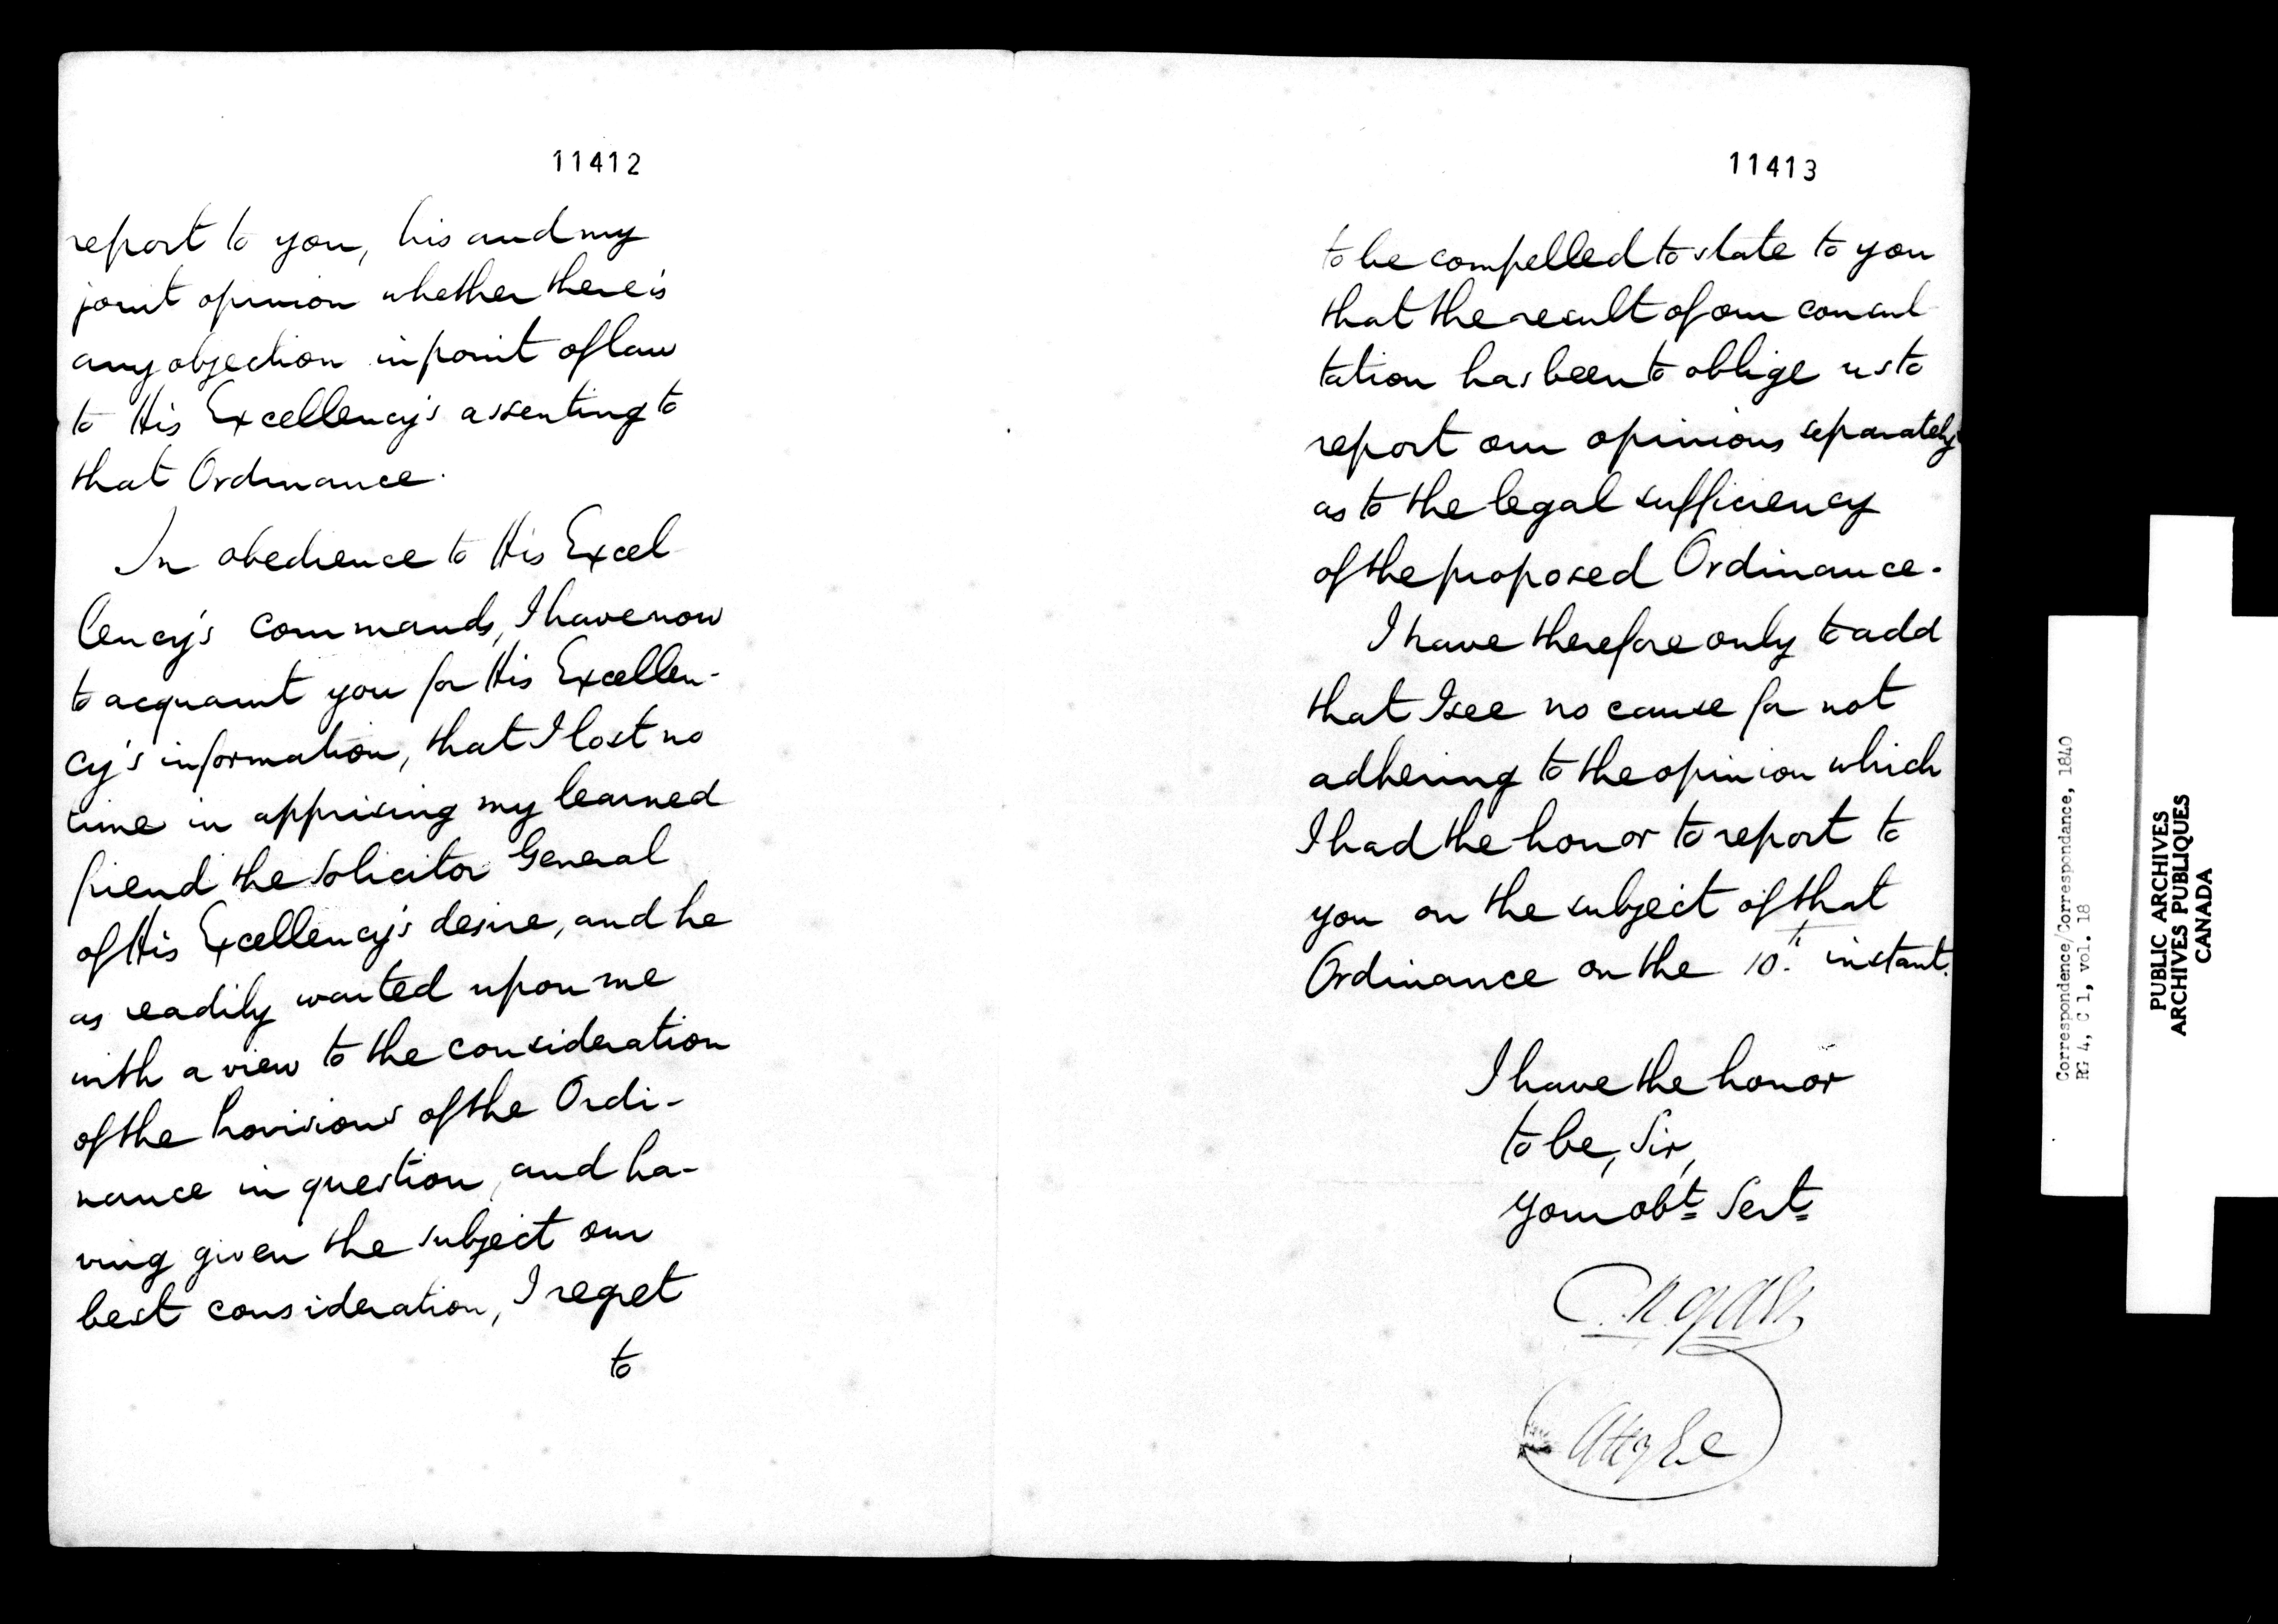 11412
report to you, his and my
joint opinion whether there is
any objection in point of law
to His Excellency's assenting to
that Ordinance.
In obedience to His Excel
lency's commands, I have now
to acquaint you for His Excellen-
cy's information, that I lost no
time in apprising my learned
friend the Solicitor General
of His Excellency's desire, and he
as readily waited upon me
with a view to the consideration
of the Provisions of the Ordi-
nance in question, and ha-
ving given the subject our
best consideration, I regret
to
11413
to be compelled to state to you
that the result of our consul
tation has been to oblige us to
report our opinions separately
as to the legal sufficiency
of the proposed Ordinance.
I have therefore only to add
that I see no cause for not
adhering to the opinion which
I had the honor to report to
you on the subject of that
Ordinance on the 10th instant.
I have the honor
to be, Sir,
Your obt Sert
Atty Gl
Correspondence/Correspondance, 1840
RG 4, C 1, vol. 18
PUBLIC ARCHIVES
ARCHIVES PUBLIQUES
CANADA